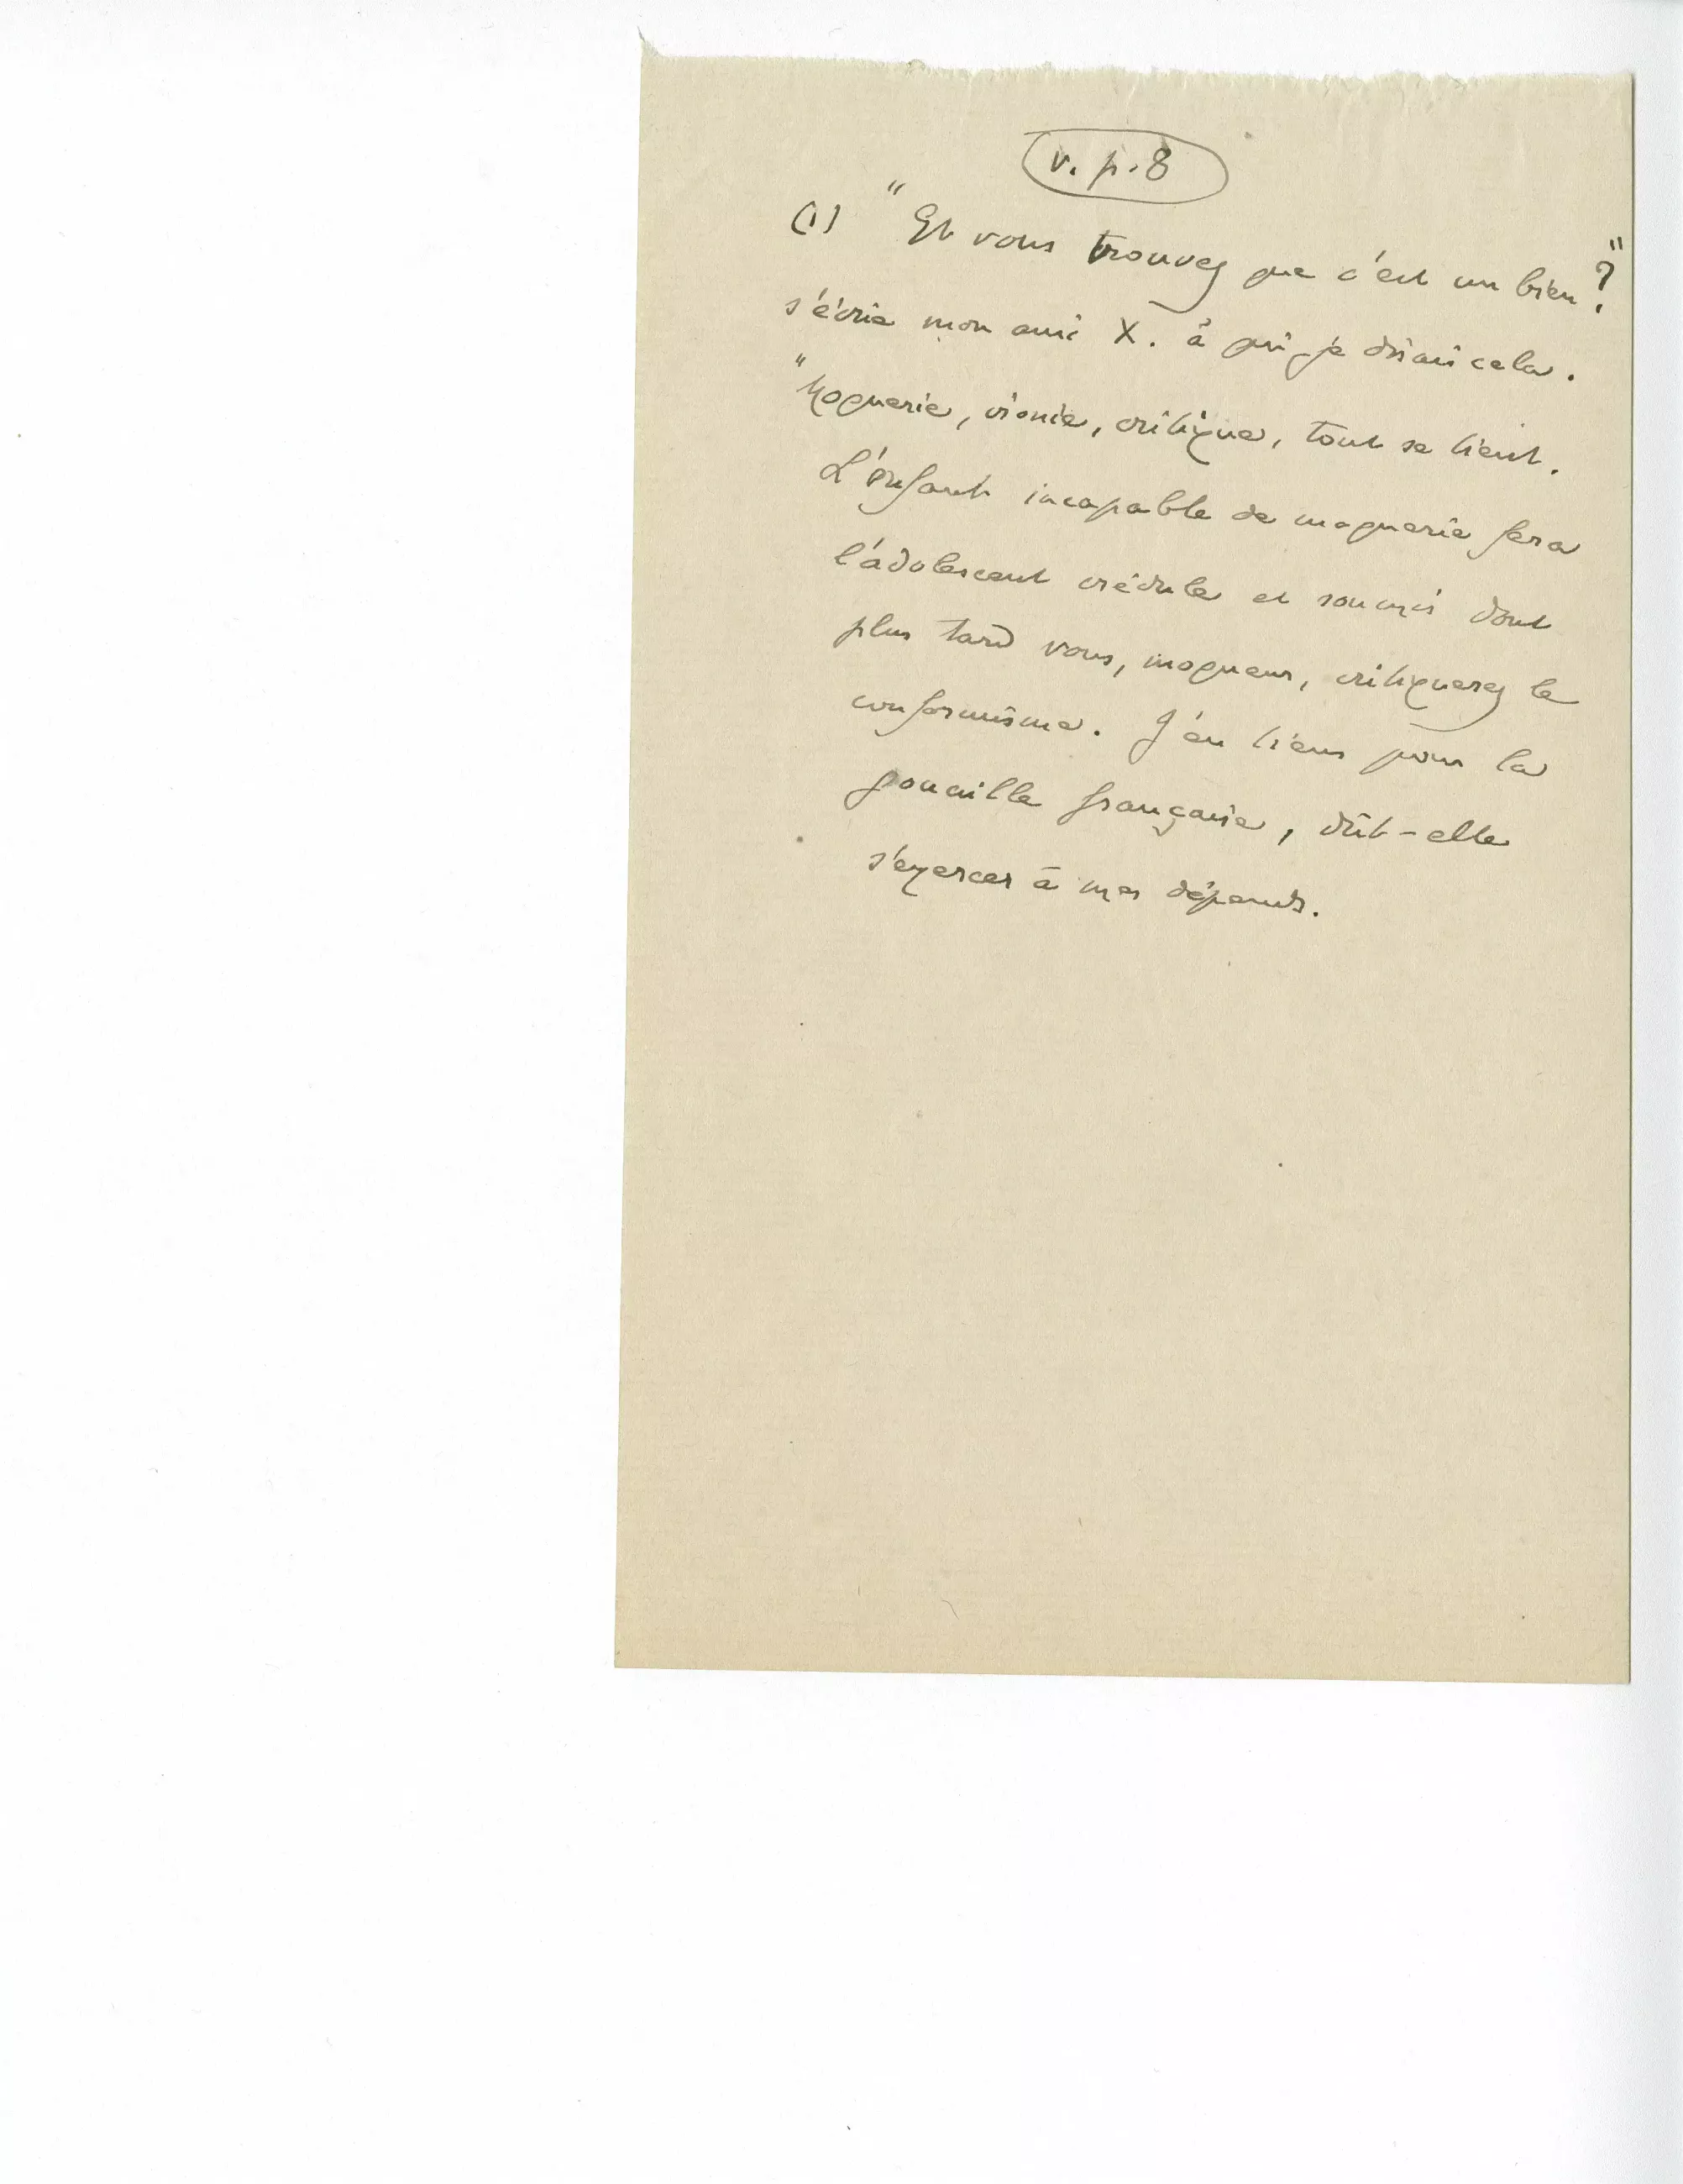 v. p. 8
(1) "Et vous trouvez que c'est un bien?"
s'écrie mon ami X. à qui je disais cela.
"Moquerie, ironie, critique, tout se tient.
L'enfant incapable de moquerie fera
l'adolescent crédule et soumis dont
plus tard vous, moqueur, critiquerez le
conformisme. J'en tiens pour la
gouaille française, dût-elle
s'exercer à mes dépends.